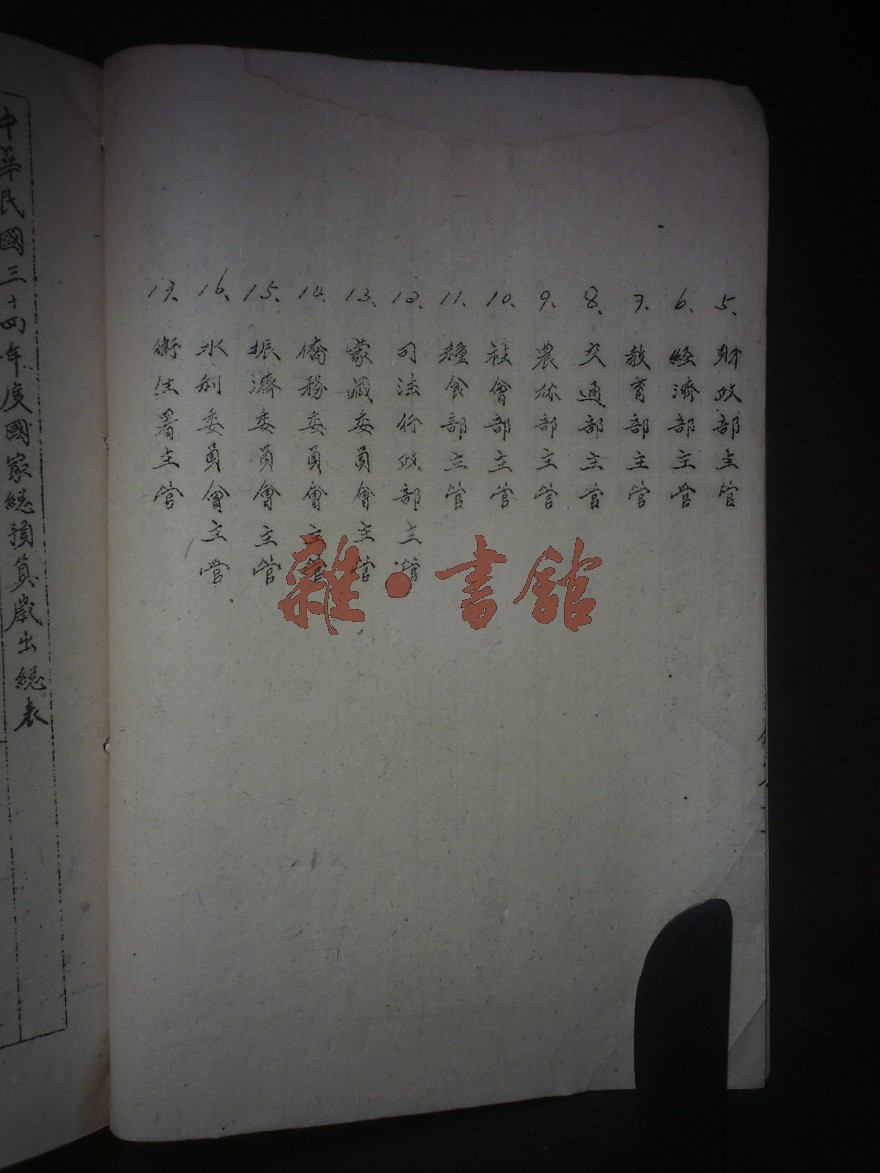 5、財政部主管
6、經濟部主管
7、教育部主管
8、交通部主管
9、農林部主管
10、社會部主管
11、糧食部主管
12、司法行政部主管
13、蒙藏委員會主管
14、僑務委員會主管
15、振濟委員會主管
16、水利委員會主管
17、衛生署主管
中華民國三十四年度國家總預算歲出總表
雜·書館